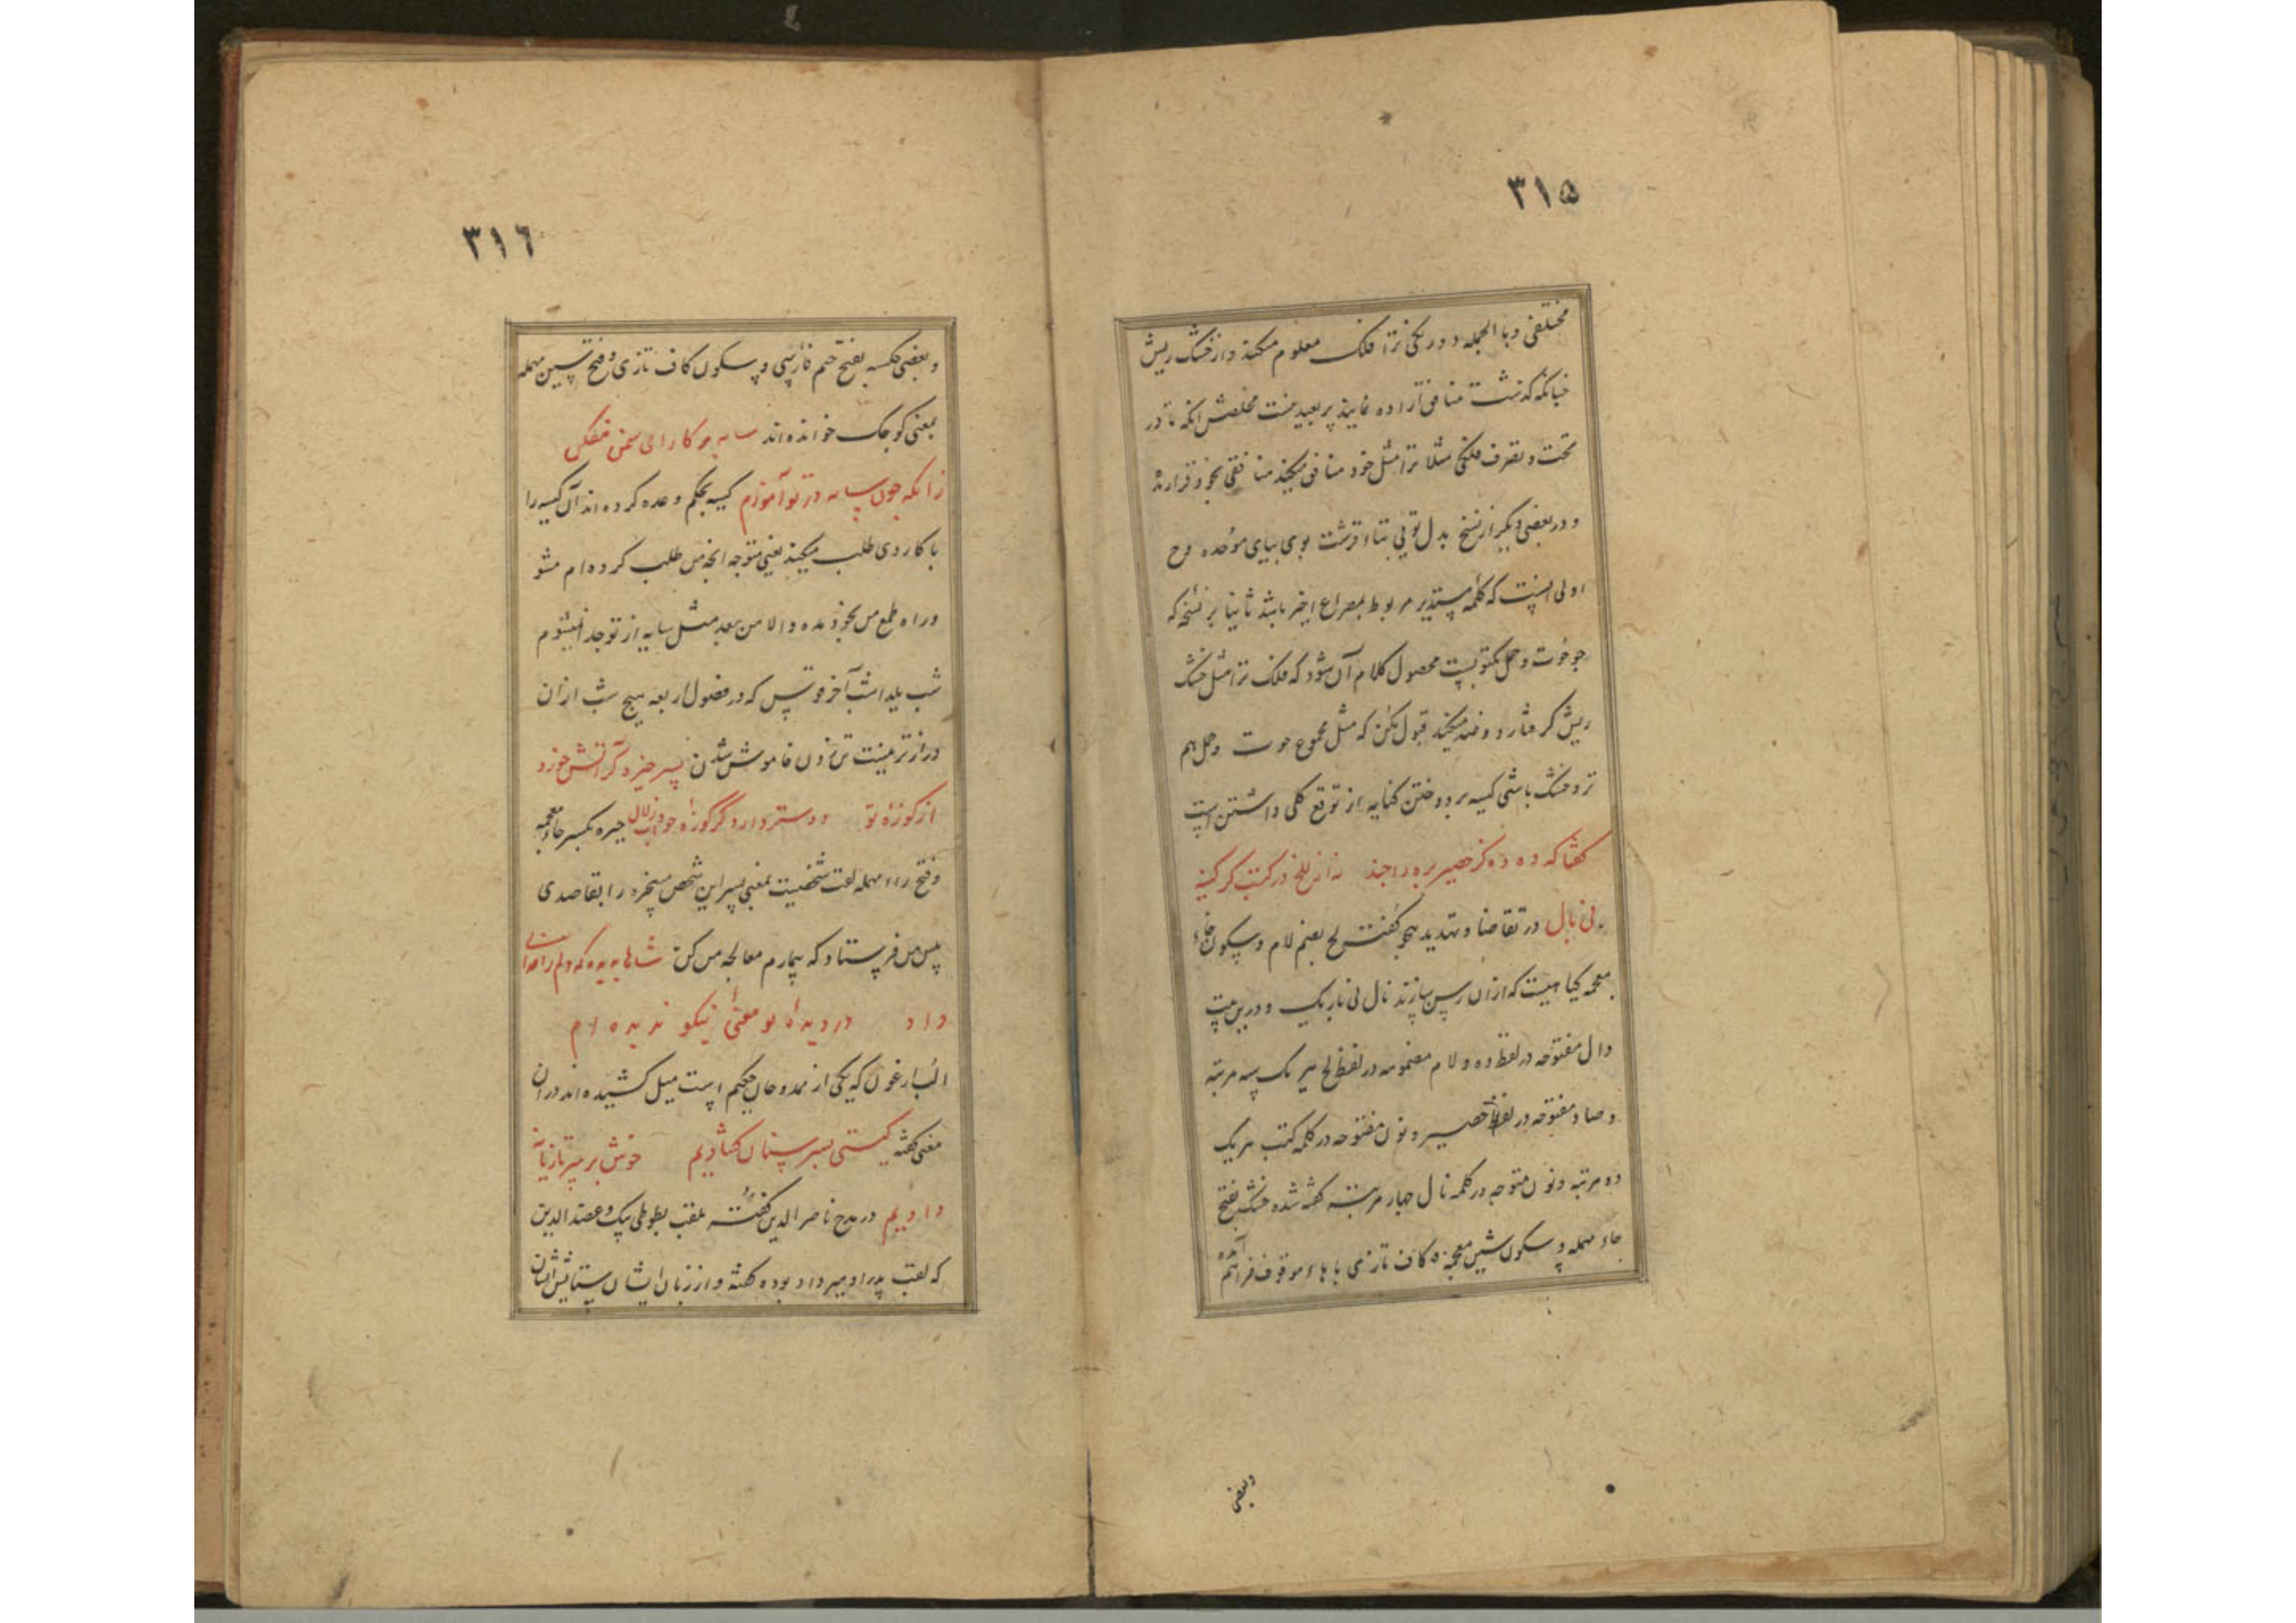 ۳۱۵
مختلفی و با الجمله دو رنگی ترا فلک معلوم میکند و از خشک ریش
چنانکه گذشت منافق اراده نمایند پر بعید نیست مخلصش انکه تا در
تحت و تصرف فلکی مثلا ترا مثل خود منافق میکند منافقی بخود قرار
و در بعضی دیگر از نسخ بدل تویی بتاء قرشت بوی ببای موحده و ح
اولی اینست که کلمه مستدیر مربوط بمصراع اخیر باشد ثانیا بر نسخه که
حوت و حمل مکتوبست محصول کلام آن شود که فلک ترا مثل خشک
ریش گرفتار دو میکند قبول مکن که مثل مجموع حوت و حمل هم
تر و خشک باشی کیسه بر دوختن کنایه از توقع کلی داشتن است
گفتا که ده ده کز حصیر
نی نال در تقاضا و تهدید هجو گفته لخ بضم لام و سکون خاء
معجمه گیاهیست که ازان رسن سازند نال نی باریک و درین بیت
دال مفتوحه در لفظ ده و لام مضمومه در لفظ لخ هر یک سه مرتبه
و صاد مفتوحه در لفظ حصیر و نون مفتوحه در کلمه کتب هر یک
ده مرتبه و نون متوجه در کلمه نال چهار مرتبه گفته شده خشک بفتح
حاء مهمله و سکون شین معجمه و کاف تازی با هاء موقوف فراهم آمده
وبعضی
۳۱٦
و بعضی چکسه بفتح جیم فارسی و سکون کاف تازی و فتح سین مهمله
بمعنی کوچک خوانده‌اند سایه بر کار ای سخن مفکن
زانکه چون سایه در تو آموزم کیسه بحکیم وعده کرده‌اند آن کیسه را
با کاردی طلب میکند یعنی متوجه انچه من طلب کرده‌ام شو
و راه طمع من بخود مده و الا من بعد مثل سایه از تو جدا نمیشوم
شب یلدا شب آخر قوس که در فصول اربعه هیچ شب ازان
درازتر نیست تن زدن خاموش شدن پسر خیره گر آتش خورد
از کوزه تو دوستر دارد گر کوزه جواب زلال خیره بکسر خاء معجمه
و فتح راء مهمله لقب شخصیست یعنی پسر این شخص مسخره را بقاصدی
پیش من فرستاد که بیمارم معالجه من کن شاها بدیده که دلم را خدای
داد در دیده تو معنی نیکو ندیده ام
الب ارغون که یکی از ممدوحان حکیم است میل کشیده‌اند در ان
معنی گفته کستی بسر سنان گشادیم خوش بر سر تازیانه
دادیم در مدح ناصر الدین گفته ملقب بطوطی بیک و عضد الدین
که لقب پدر او میر داد بوده گفته و از زبان ایشان ستایش ایشان